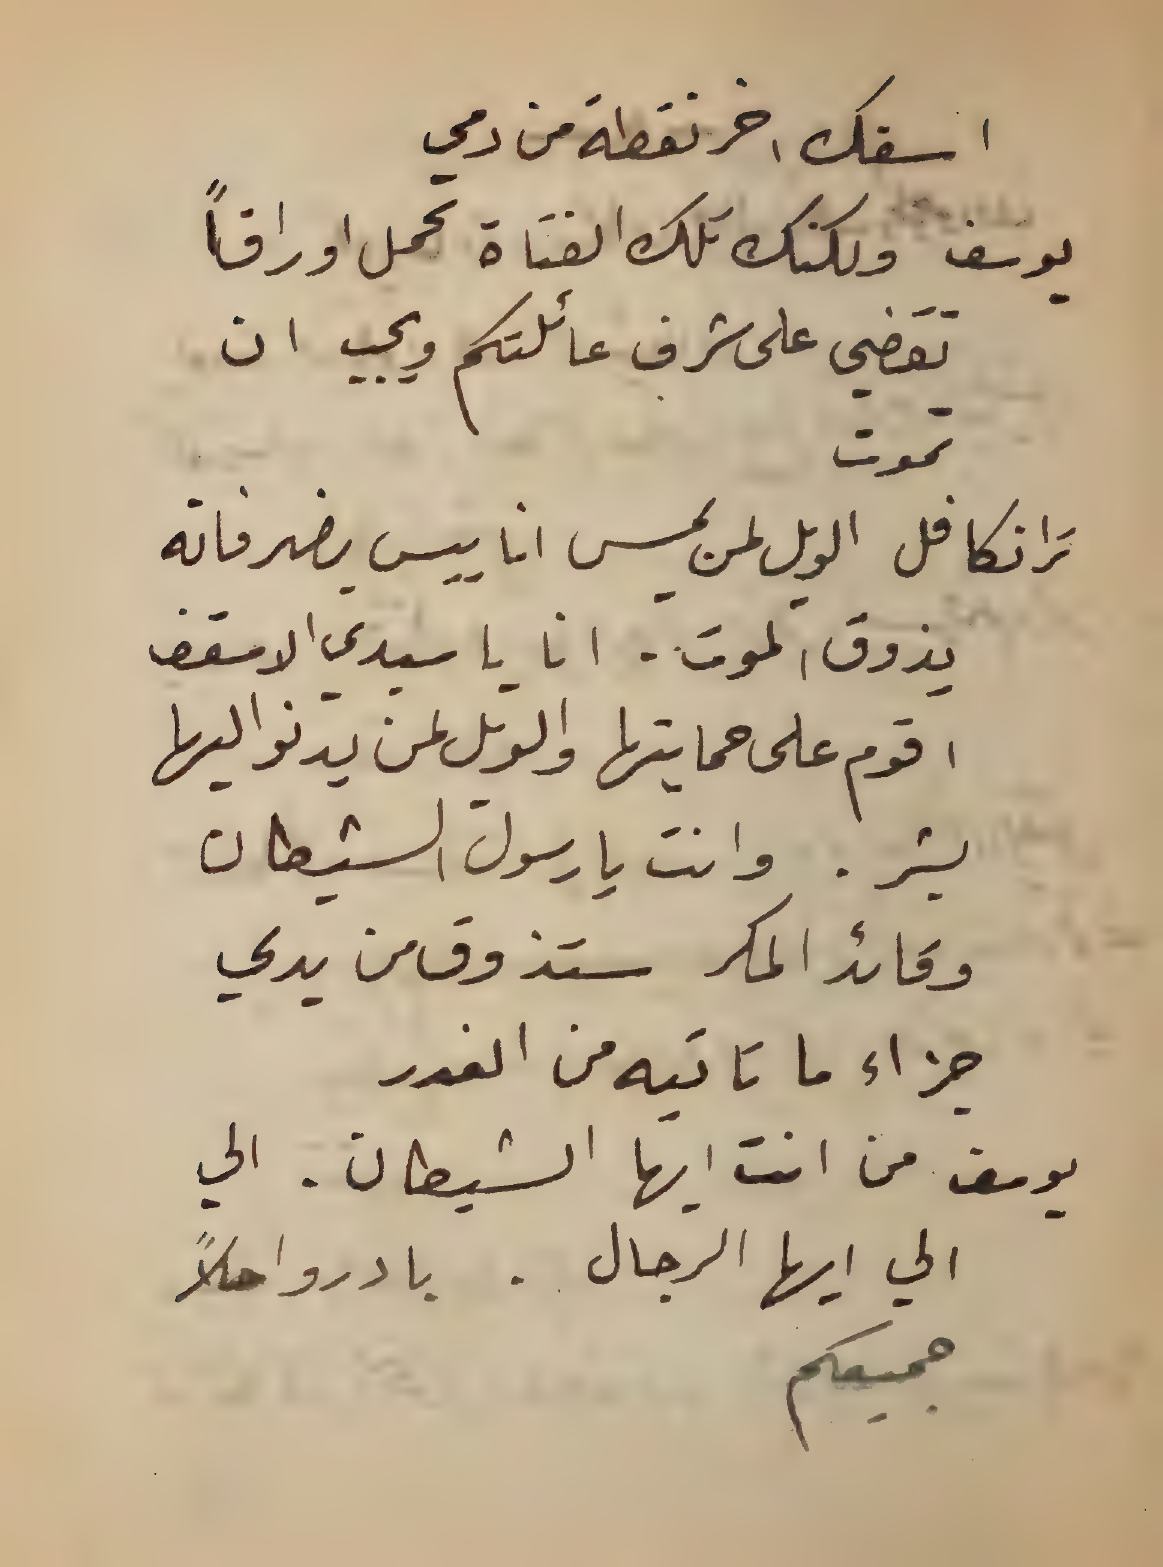 اسفك اخر نقطة من دمي
يوسف ولكنك تلك الفتاة تحمل اوراقاً
تقضي على شرف عائلتكم ويجب ان
تموت
ترانكافل الويل لمن يمس انا ييس بضر فانه
يذوق الموت .. انا يا سيدي الاسقف
اقوم على حمايتها والويل لمن يدنو اليها
بشر . وانت يا رسول الشيطان
وقائد المكر ستذوق من يدي
جزاء ما تاتيه من الغدر
يوسف من انت ايها الشيطان . الي
الي ايها الرجال . بادروا حلاً
جميعكم